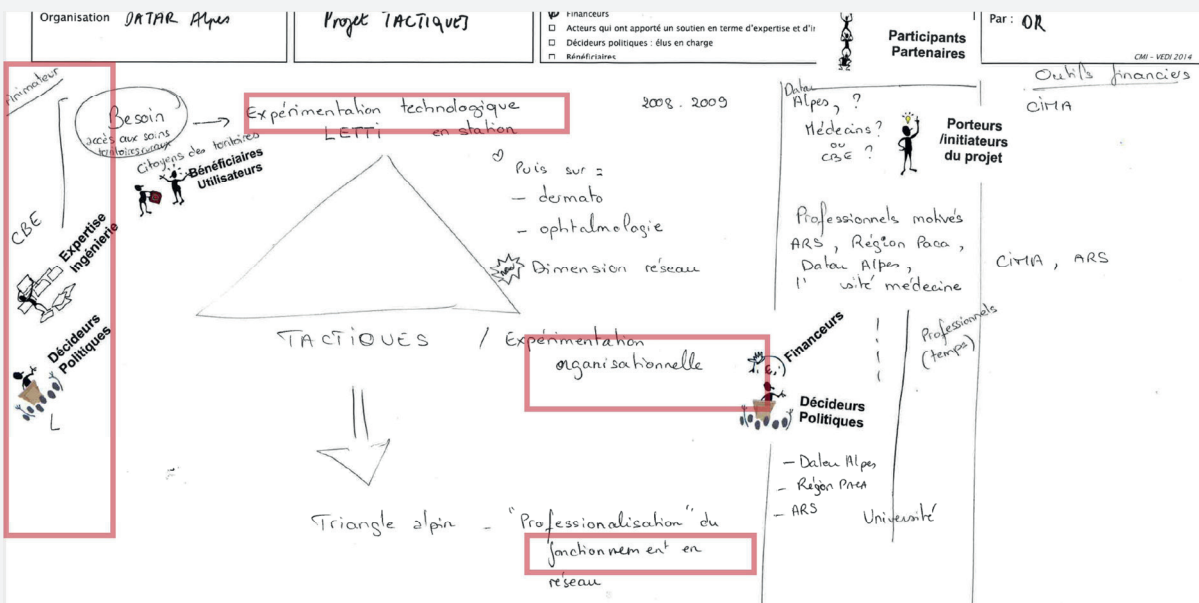 Organisation DATAR Alpes
Projet TACTIQUES
Financeurs
Acteurs qui ont apporté un soutien en terme d'expertise et d'in
Décideurs politiques : élus en charge
Bénéficiaires
Participants
Partenaires
Par : OR
CMI - VEDI 2014
Animateur
Besoin
accès aux soins
territoires ruraux
Expérimentation technologique
LETTI en station
2008 - 2009
Citoyens des territoires
Bénéficiaires
Utilisateurs
Puis sur :
- dermato
- ophtalmologie
new
Dimension réseau
CBE
Expertise
Ingénierie
Décideurs
Politiques
L
TACTIQUES / Expérimentation
organisationnelle
Triangle alpin - "Professionalisation" du
fonctionnement en
réseau
Datar
Alpes, ?
Médecins ?
ou
CBE ?
Porteurs
/initiateurs
du projet
Professionnels motivés
ARS, Région Paca,
Datar Alpes,
l' usité médecine
Financeurs
Décideurs
Politiques
- Datar Alpes
- Région PACA
- ARS
Université
Professionnels
(temps)
Outils financiers
CIMA
CIMA, ARS